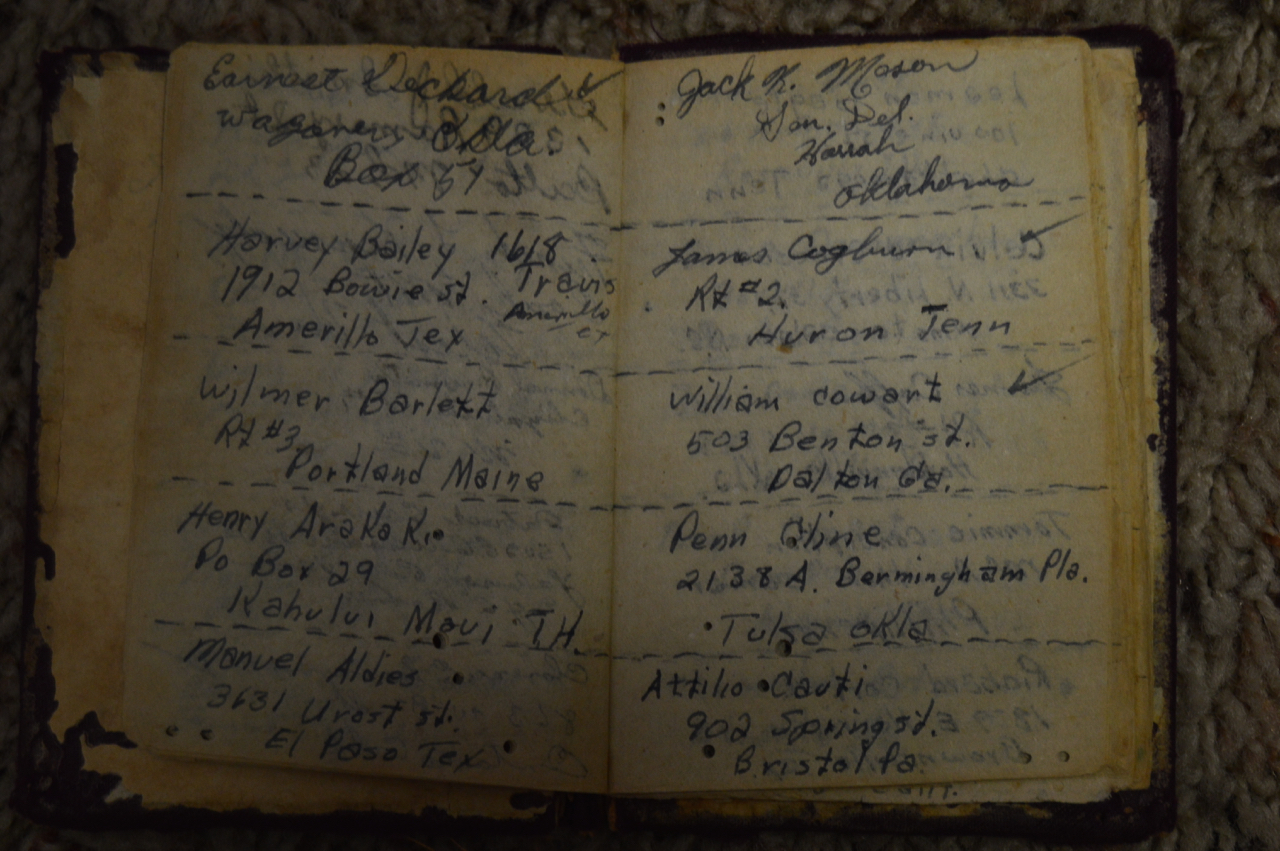 Earnest Dechard
Wagoner, Okla.
Box 57
Harvey Bailey 1618
1912 Bowie st. Travis
Amarillo
Amerillo Tex
Wilmer Barlett
Rt #3
Portland Maine
Henry Arakaki
Po Box 29
Kahului Maui T.H.
Manuel Aldies
3631 Urost st.
El Paso Tex
Jack K. Mason
Gen. Del.
Harrah
Oklahoma
James Cogburn
Rt #2.
Huron Tenn
William Cowart
503 Benton st.
Dalton Ga.
Penn Cline
2138 A. Bermingham Pla.
Tulsa Okla
Attilio Cauti
902 Spring st.
Bristol Pa.